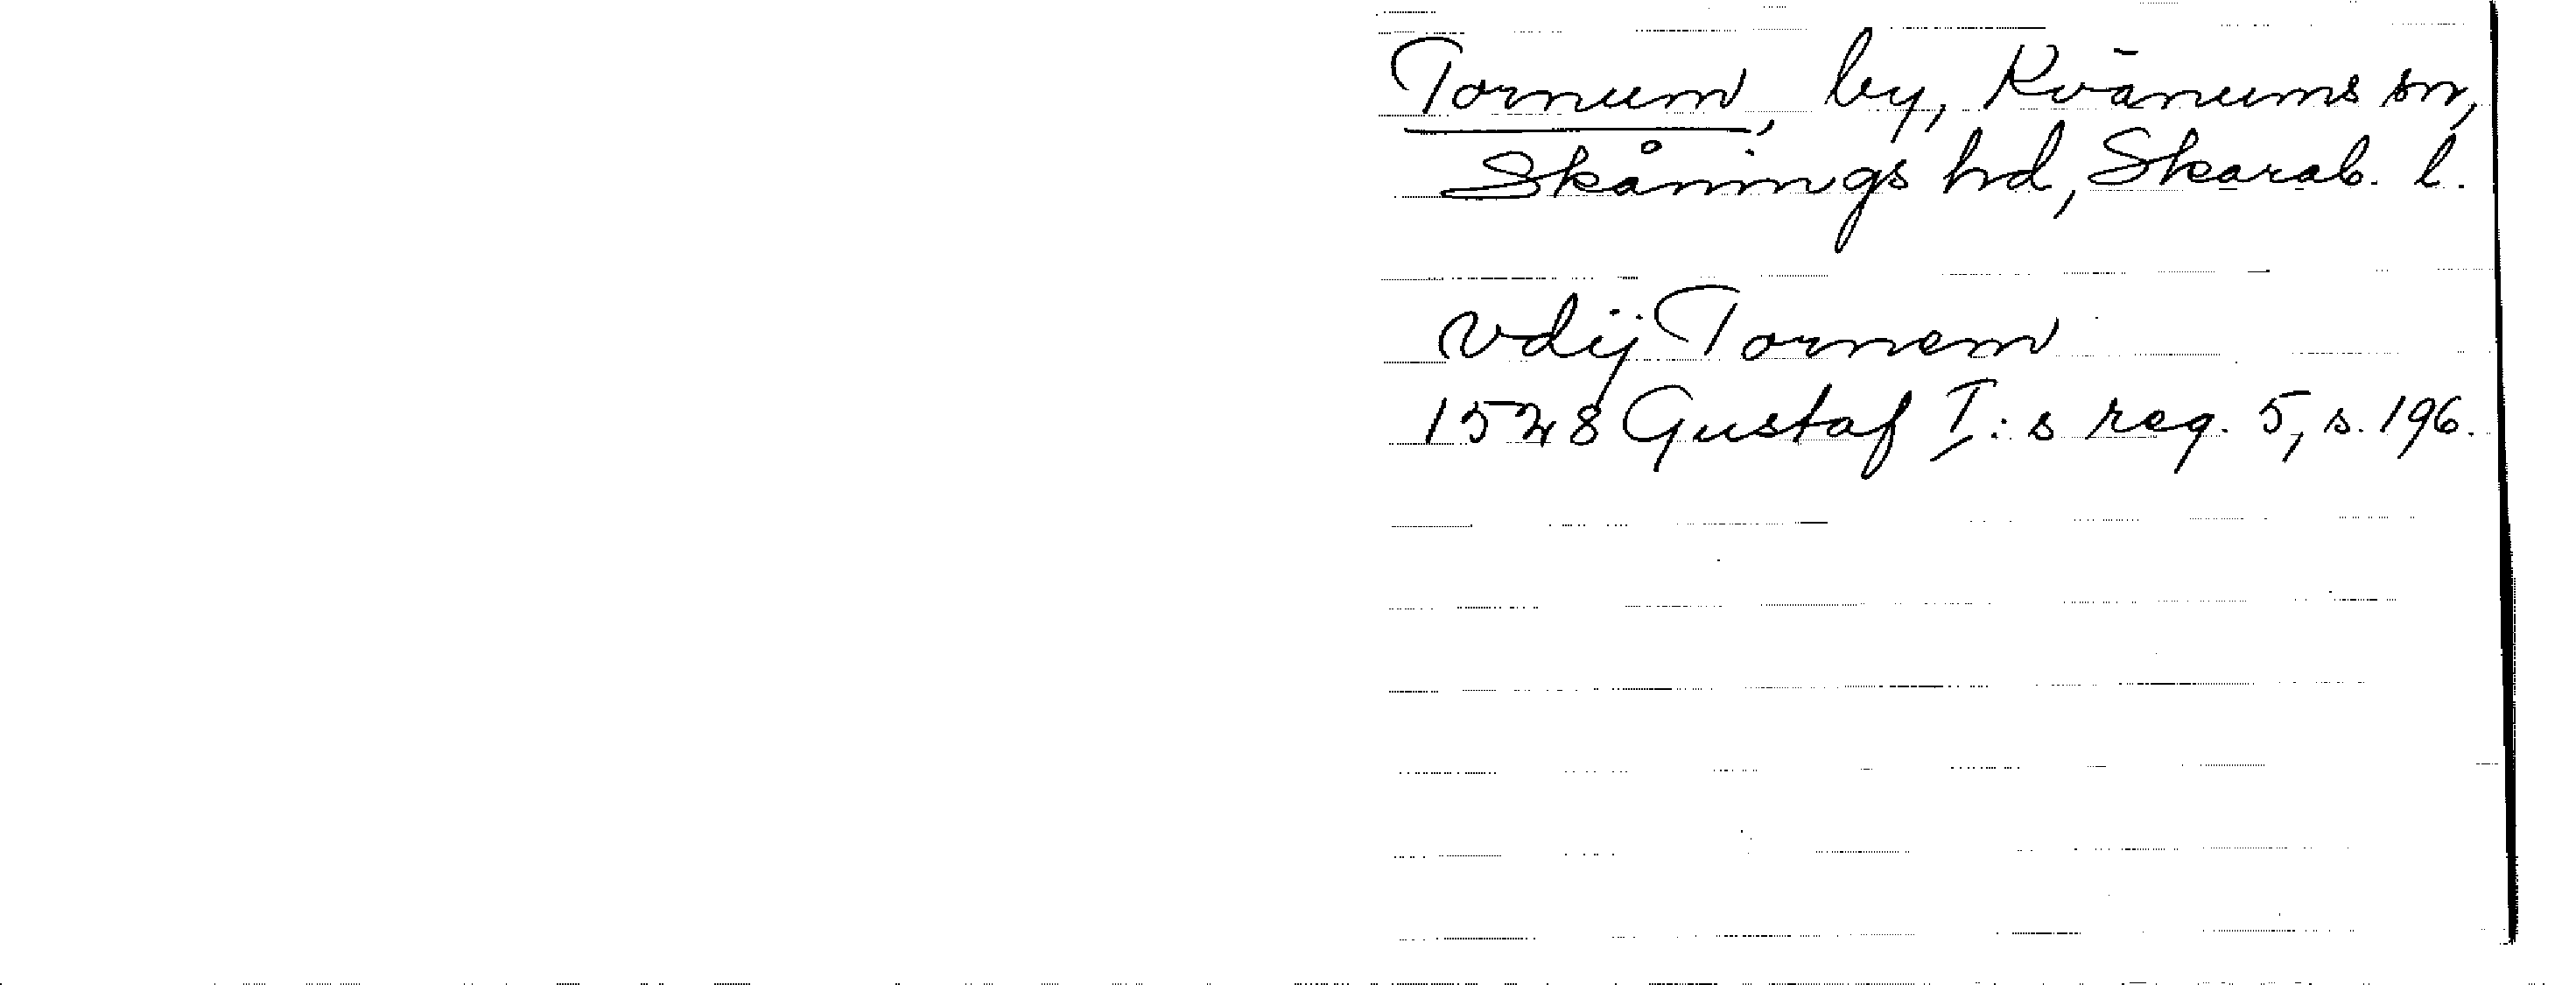 Tornum, by, Kvänums sn,
Skånings hd, Skarab. l.
Vdij Tornem
1528 Gustaf I:s reg. 5, s. 196.